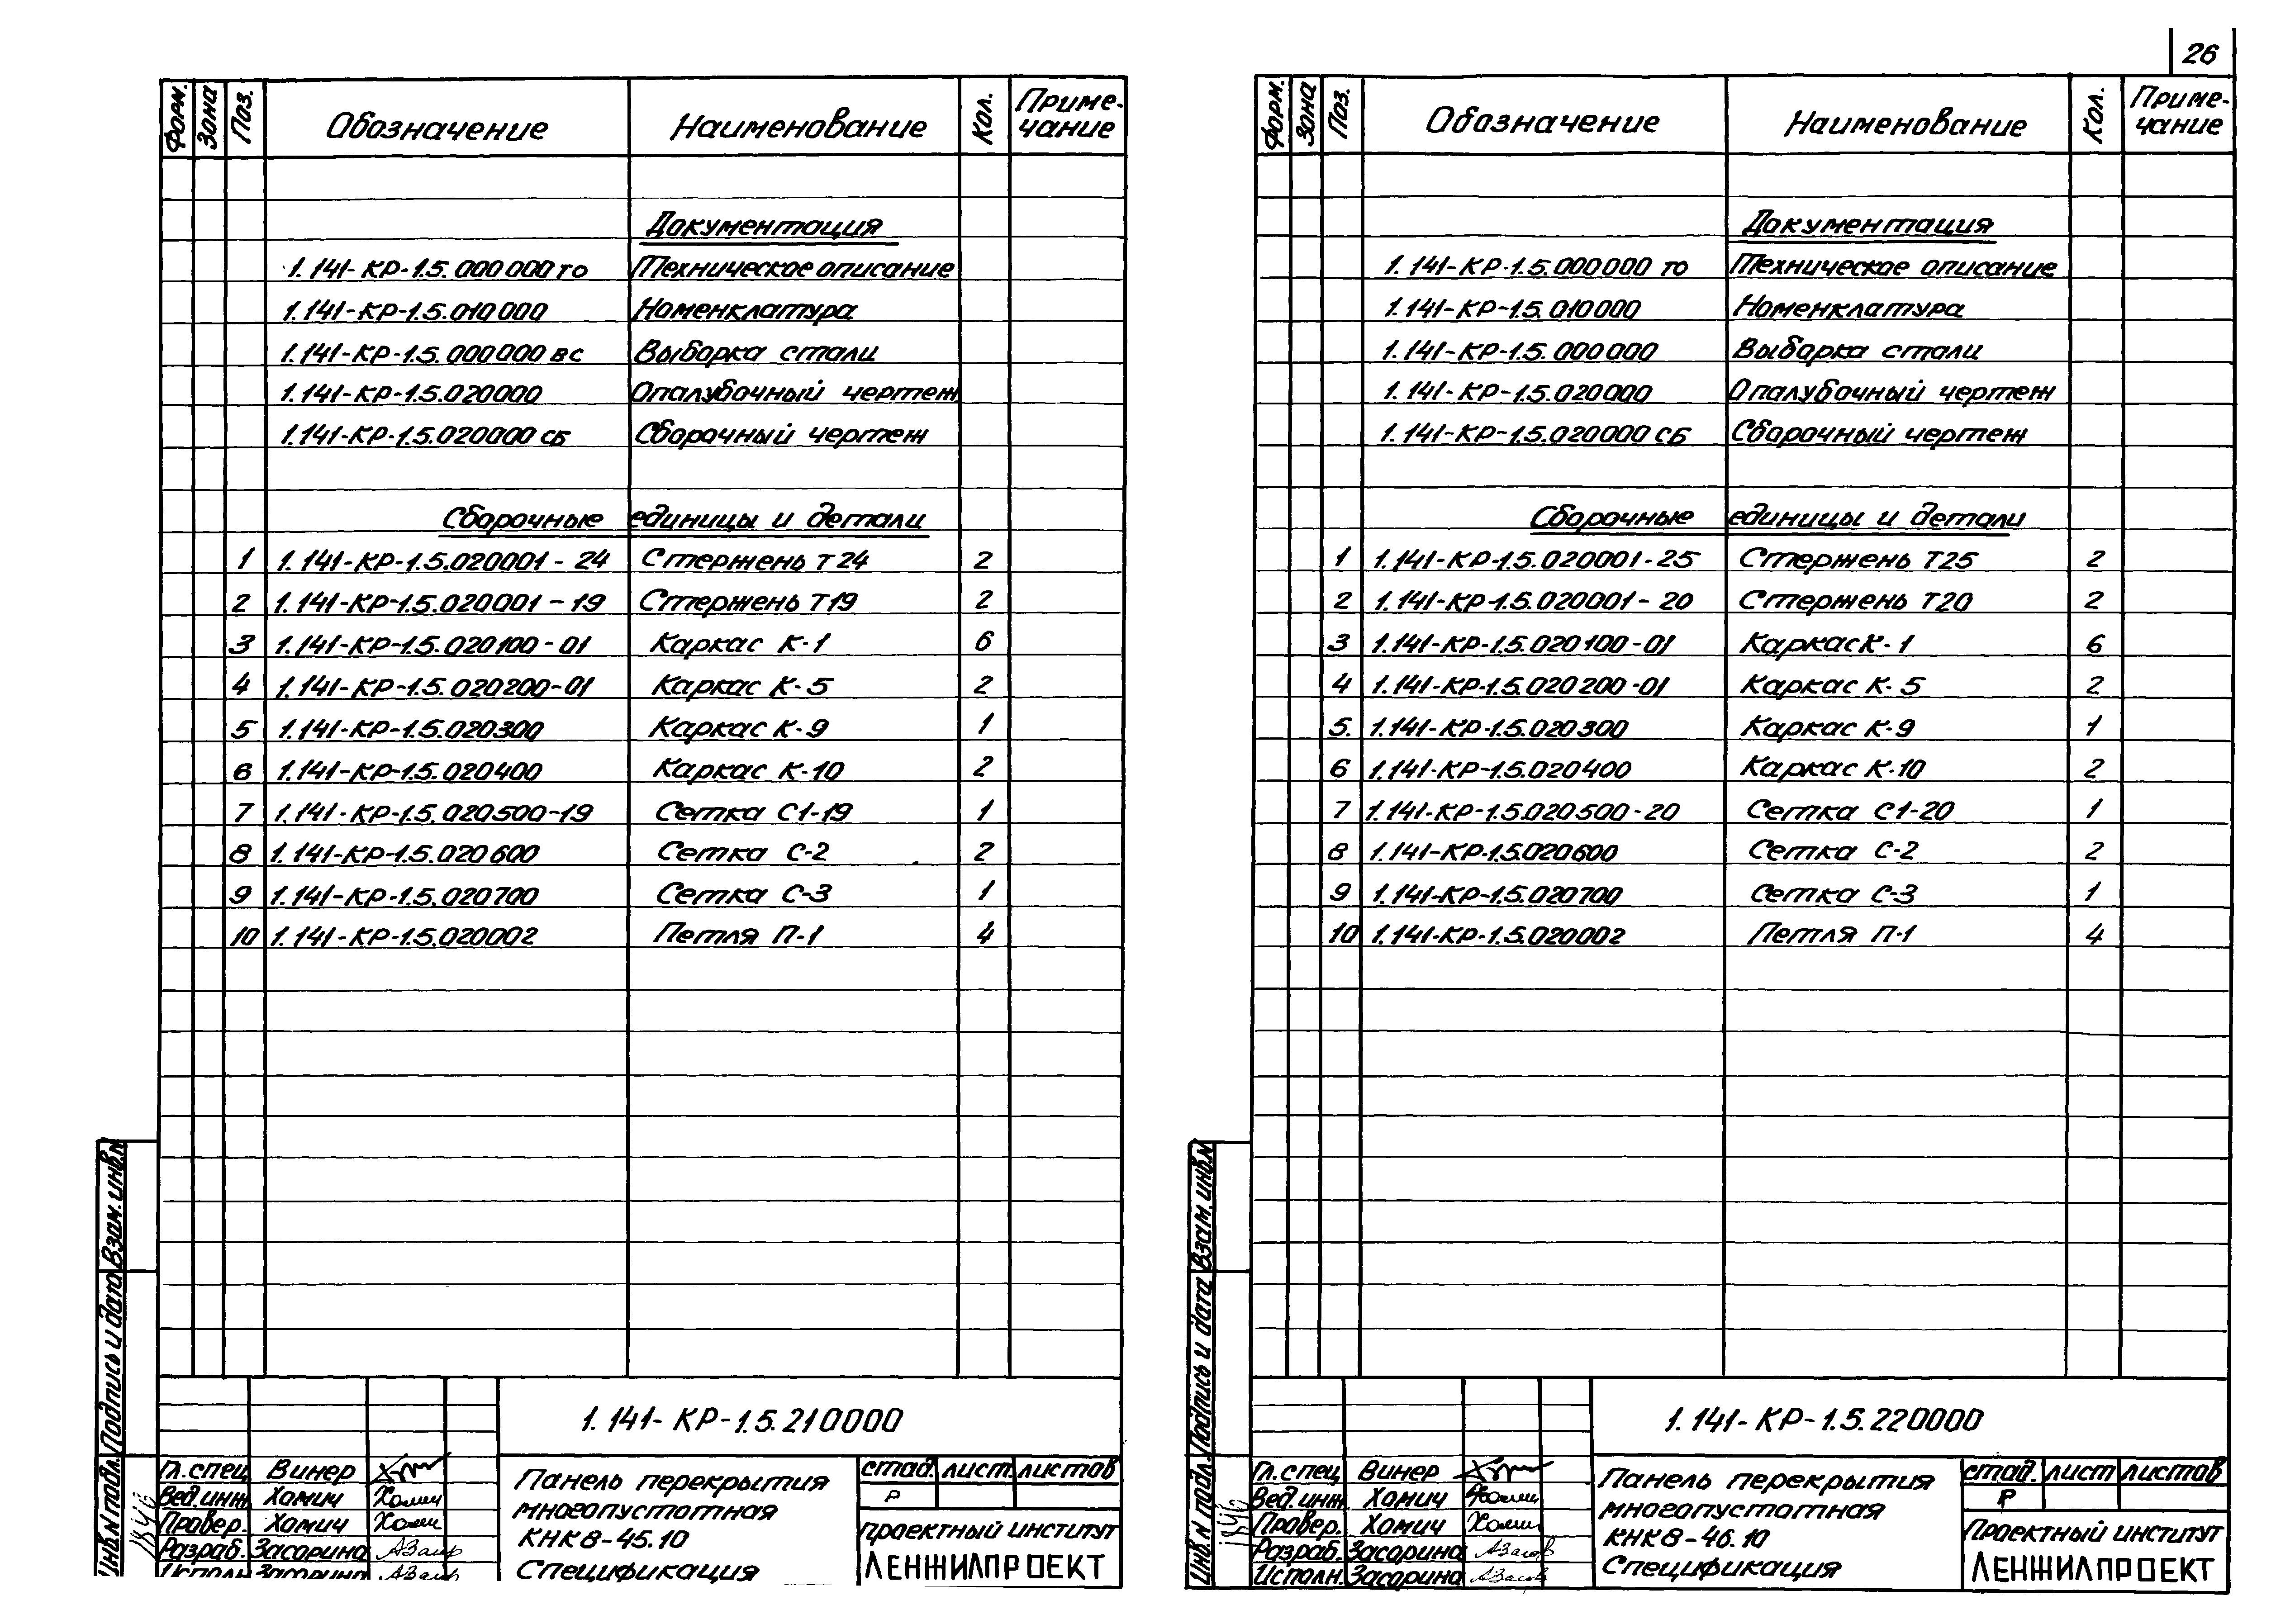 26
Форм. Зона Поз. Обозначение Наименование Кол. Приме-чание
Документация
1.141-КР-1.5.000000 ТО Техническое описание
1.141-КР-1.5.010000 Номенклатура
1.141-КР-1.5.000000 ВС Выборка стали
1.141-КР-1.5.020000 Опалубочный чертеж
1.141-КР-1.5.020000 СБ Сборочный чертеж
Сборочные единицы и детали
1 1.141-КР-1.5.020001-24 Стержень Т24 2
2 1.141-КР-1.5.020001-19 Стержень Т19 2
3 1.141-КР-1.5.020100-01 Каркас К-1 6
4 1.141-КР-1.5.020200-01 Каркас К-5 2
5 1.141-КР-1.5.020300 Каркас К-9 1
6 1.141-КР-1.5.020400 Каркас К-10 2
7 1.141-КР-1.5.020500-19 Сетка С1-19 1
8 1.141-КР-1.5.020600 Сетка С-2 2
9 1.141-КР-1.5.020700 Сетка С-3 1
10 1.141-КР-1.5.020002 Петля П-1 4
Взам. инв.N
Подпись и дата
Инв. N подл.
1846
1.141-КР-1.5.210000
Гл. спец Винер
Вед. инж Хомич
Провер. Хомич
Разраб. Засорина
Исполн. Засорина
Панель перекрытия
многопустотная
КНК 8-45.10
Спецификация
стад. лист листов
Р
Проектный институт
ЛЕНЖИЛПРОЕКТ
Форм. Зона Поз. Обозначение Наименование Кол. Приме-чание
Документация
1.141-КР-1.5.000000 ТО Техническое описание
1.141-КР-1.5.010000 Номенклатура
1.141-КР-1.5.000000 Выборка стали
1.141-КР-1.5.020000 Опалубочный чертеж
1.141-КР-1.5.020000 СБ Сборочный чертеж
Сборочные единицы и детали
1 1.141-КР-1.5.020001-25 Стержень Т25 2
2 1.141-КР-1.5.020001-20 Стержень Т20 2
3 1.141-КР-1.5.020100-01 Каркас К-1 6
4 1.141-КР-1.5.020200-01 Каркас К-5 2
5. 1.141-КР-1.5.020300 Каркас К-9 1
6 1.141-КР-1.5.020400 Каркас К-10 2
7 1.141-КР-1.5.020500-20 Сетка С1-20 1
8 1.141-КР-1.5.020600 Сетка С-2 2
9 1.141-КР-1.5.020700 Сетка С-3 1
10 1.141-КР-1.5.020002 Петля П-1 4
Взам. инв.N
Подпись и дата
Инв. N подл.
1846
1.141-КР-1.5.220000
Гл. спец Винер
Вед. инж Хомич
Провер. Хомич
Разраб. Засорина
Исполн. Засорина
Панель перекрытия
многопустотная
КНК 8-46.10
Спецификация
стад. лист листов
Р
Проектный институт
ЛЕНЖИЛПРОЕКТ